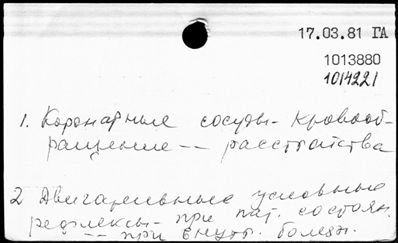 17.03.81 ГА
1013880
1014221
1. Коронарные сосуды - кровооб-
ращение -- расстройства
2 Двигательные условные
рефлексы - при пат. состоян.
-- при внутр. болезн.